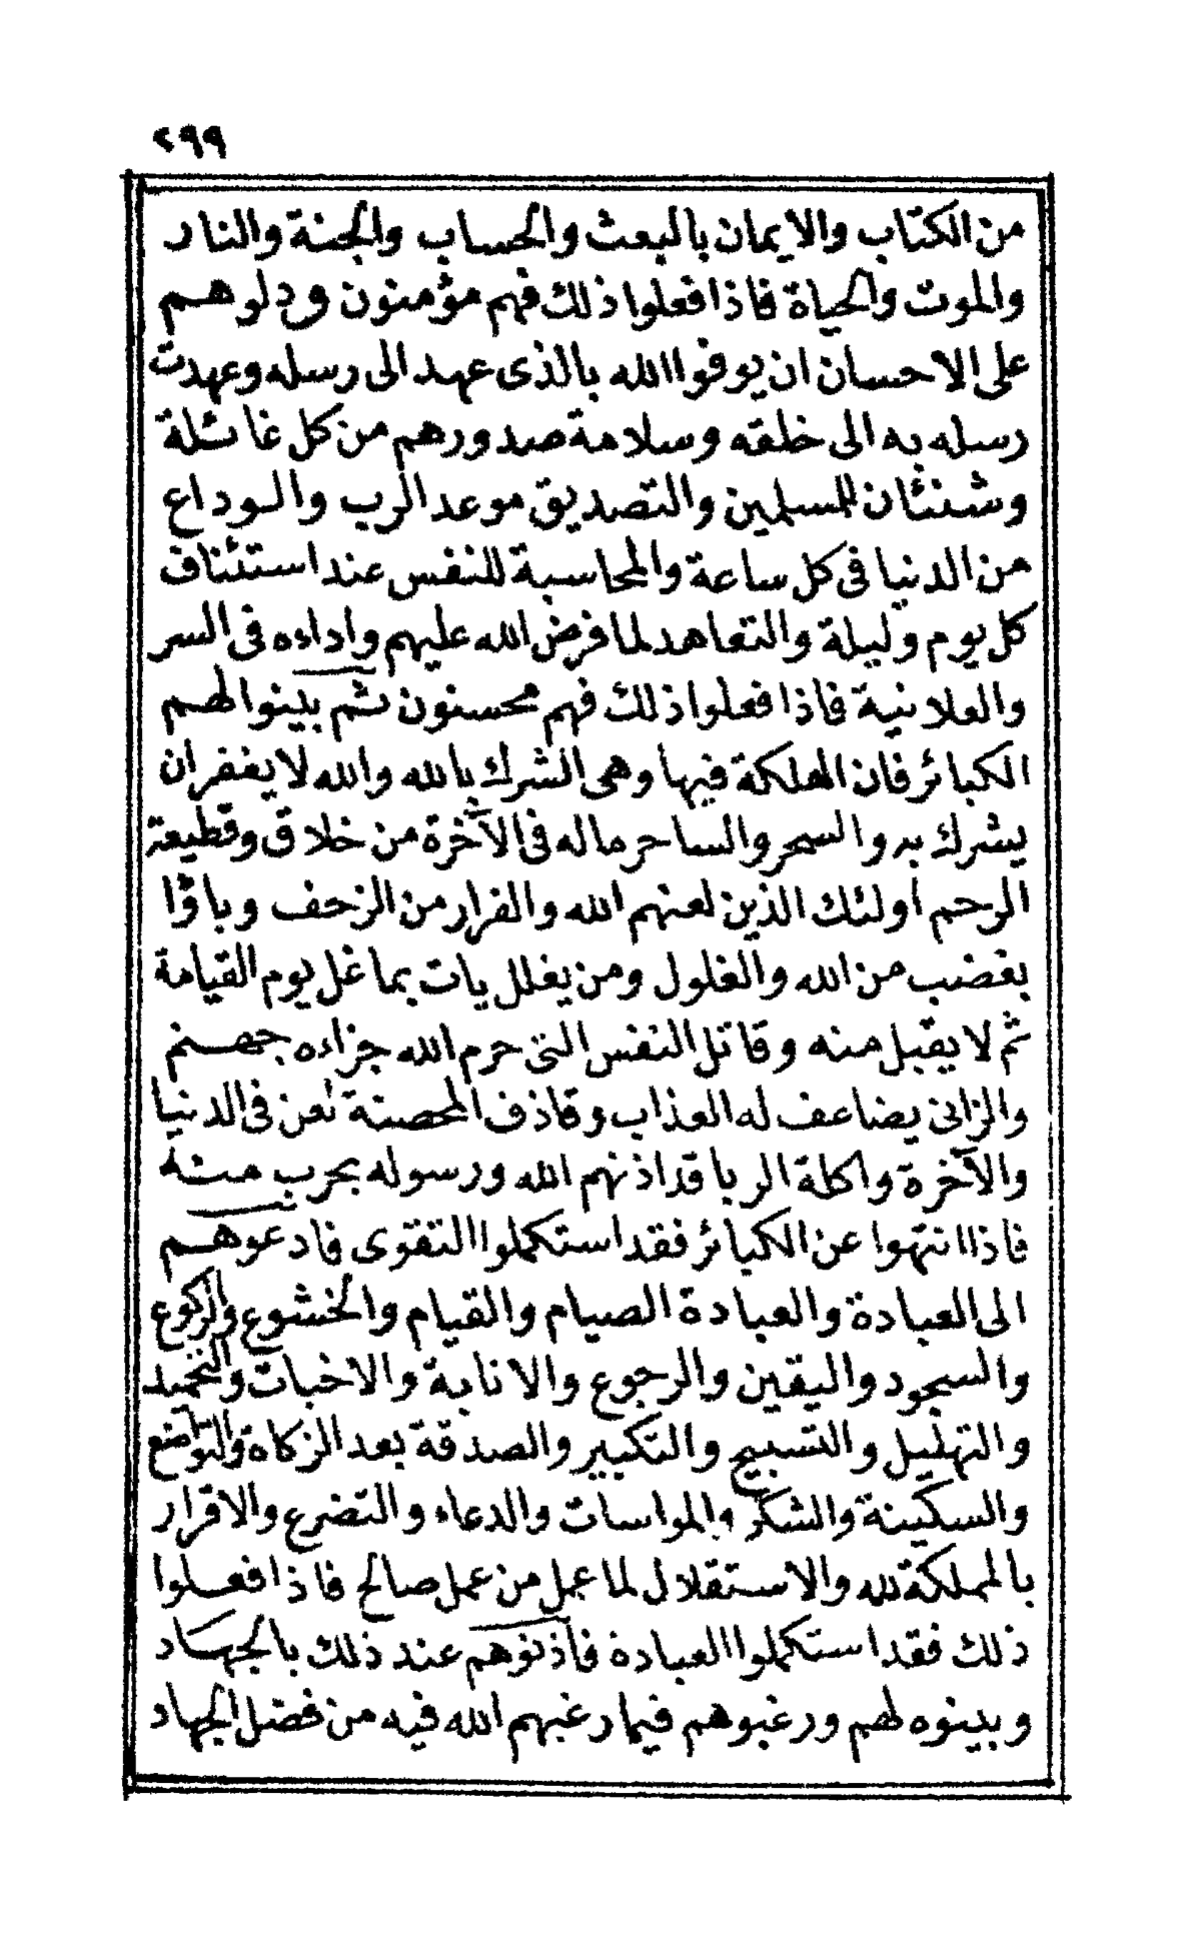 ٢٩٩
من الكتاب والايمان بالبعث والحساب والجنة والنار
والموت والحياة فاذا فعلوا ذلك فهم مؤمنون ودلوهم
على الاحسان ان يوفوا الله بالذى عهد الى رسله وعهدت
رسله به الى خلقه وسلامة صدورهم من كل غائلة
وشنئان للمسلمين والتصديق موعد الرب والوداع
من الدنيا فى كل ساعة والمحاسبة للنفس عند استئناف
كل يوم وليلة والتعاهد لما فرض الله عليهم واداءه فى السر
والعلانية فاذا فعلوا ذلك فهم محسنون ثم بينوا لهم
الكبائر فان الهلكة فيها وهى الشرك بالله والله لا يغفر ان
يشرك به والسحر والساحر ماله فى الآخرة من خلاق وقطيعة
الرحم اولئك الذين لعنهم الله والفرار من الزحف وباؤا
بغضب من الله والغلول ومن يغلل يات بما غل يوم القيامة
ثم لا يقبل منه وقاتل النفس التى حرم الله جزاءه جهنم
والزانى يضاعف له العذاب وقاذف المحصنة لعن فى الدنيا
والآخرة واكلة الربا قد اذنهم الله ورسوله بحرب منه
فاذا انتهوا عن الكبائر فقد استكملوا التقوى فادعوهم
الى العبادة والعبادة الصيام والقيام والخشوع والركوع
والسجود واليقين والرجوع والانابة والاخبات والتحميد
والتهليل والتسبيح والتكبير والصدقة بعد الزكاة والتواضع
والسكينة والشكر والمواسات والدعاء والتضرع والاقرار
بالملكة لله والاستقلال لما عمل من عمل صالح فاذا فعلوا
ذلك فقد استكملوا العبادة فآذنوهم عند ذلك بالجهاد
وبينوه لهم ورغبوهم فيما رغبهم الله فيه من فضل الجهاد